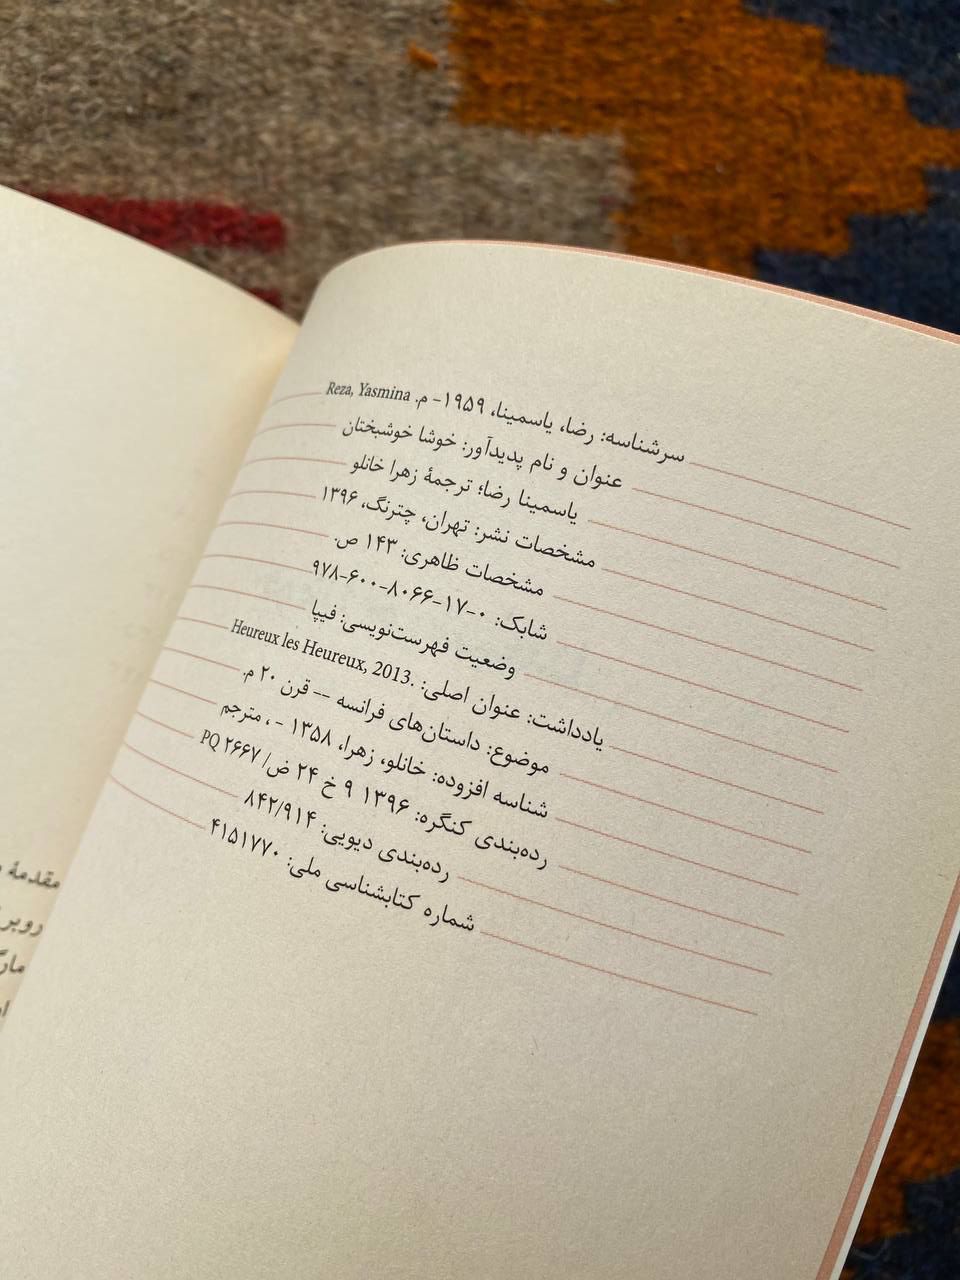 سرشناسه: رضا، یاسمینا، ۱۹۵۹- م. Reza, Yasmina
عنوان و نام پدیدآور: خوشا خوشبختان
یاسمینا رضا؛ ترجمهٔ زهرا خانلو
مشخصات نشر: تهران، چترنگ، ۱۳۹۶
مشخصات ظاهری: ۱۴۳ ص.
شابک: ۰-۱۷-۸۰۶۶-۶۰۰-۹۷۸
وضعیت فهرست‌نویسی: فیپا
یادداشت: عنوان اصلی: Heureux les Heureux, 2013.
موضوع: داستان‌های فرانسه -- قرن ۲۰ م.
شناسه افزوده: خانلو، زهرا، ۱۳۵۸ - ، مترجم
رده‌بندی کنگره: ۱۳۹۶ ۹ خ ۲۴ ض/ ۲۶۶۷ PQ
رده‌بندی دیویی: ۸۴۲/۹۱۴
شماره کتابشناسی ملی: ۴۱۵۱۷۷۰
مقدمهٔ
روبر